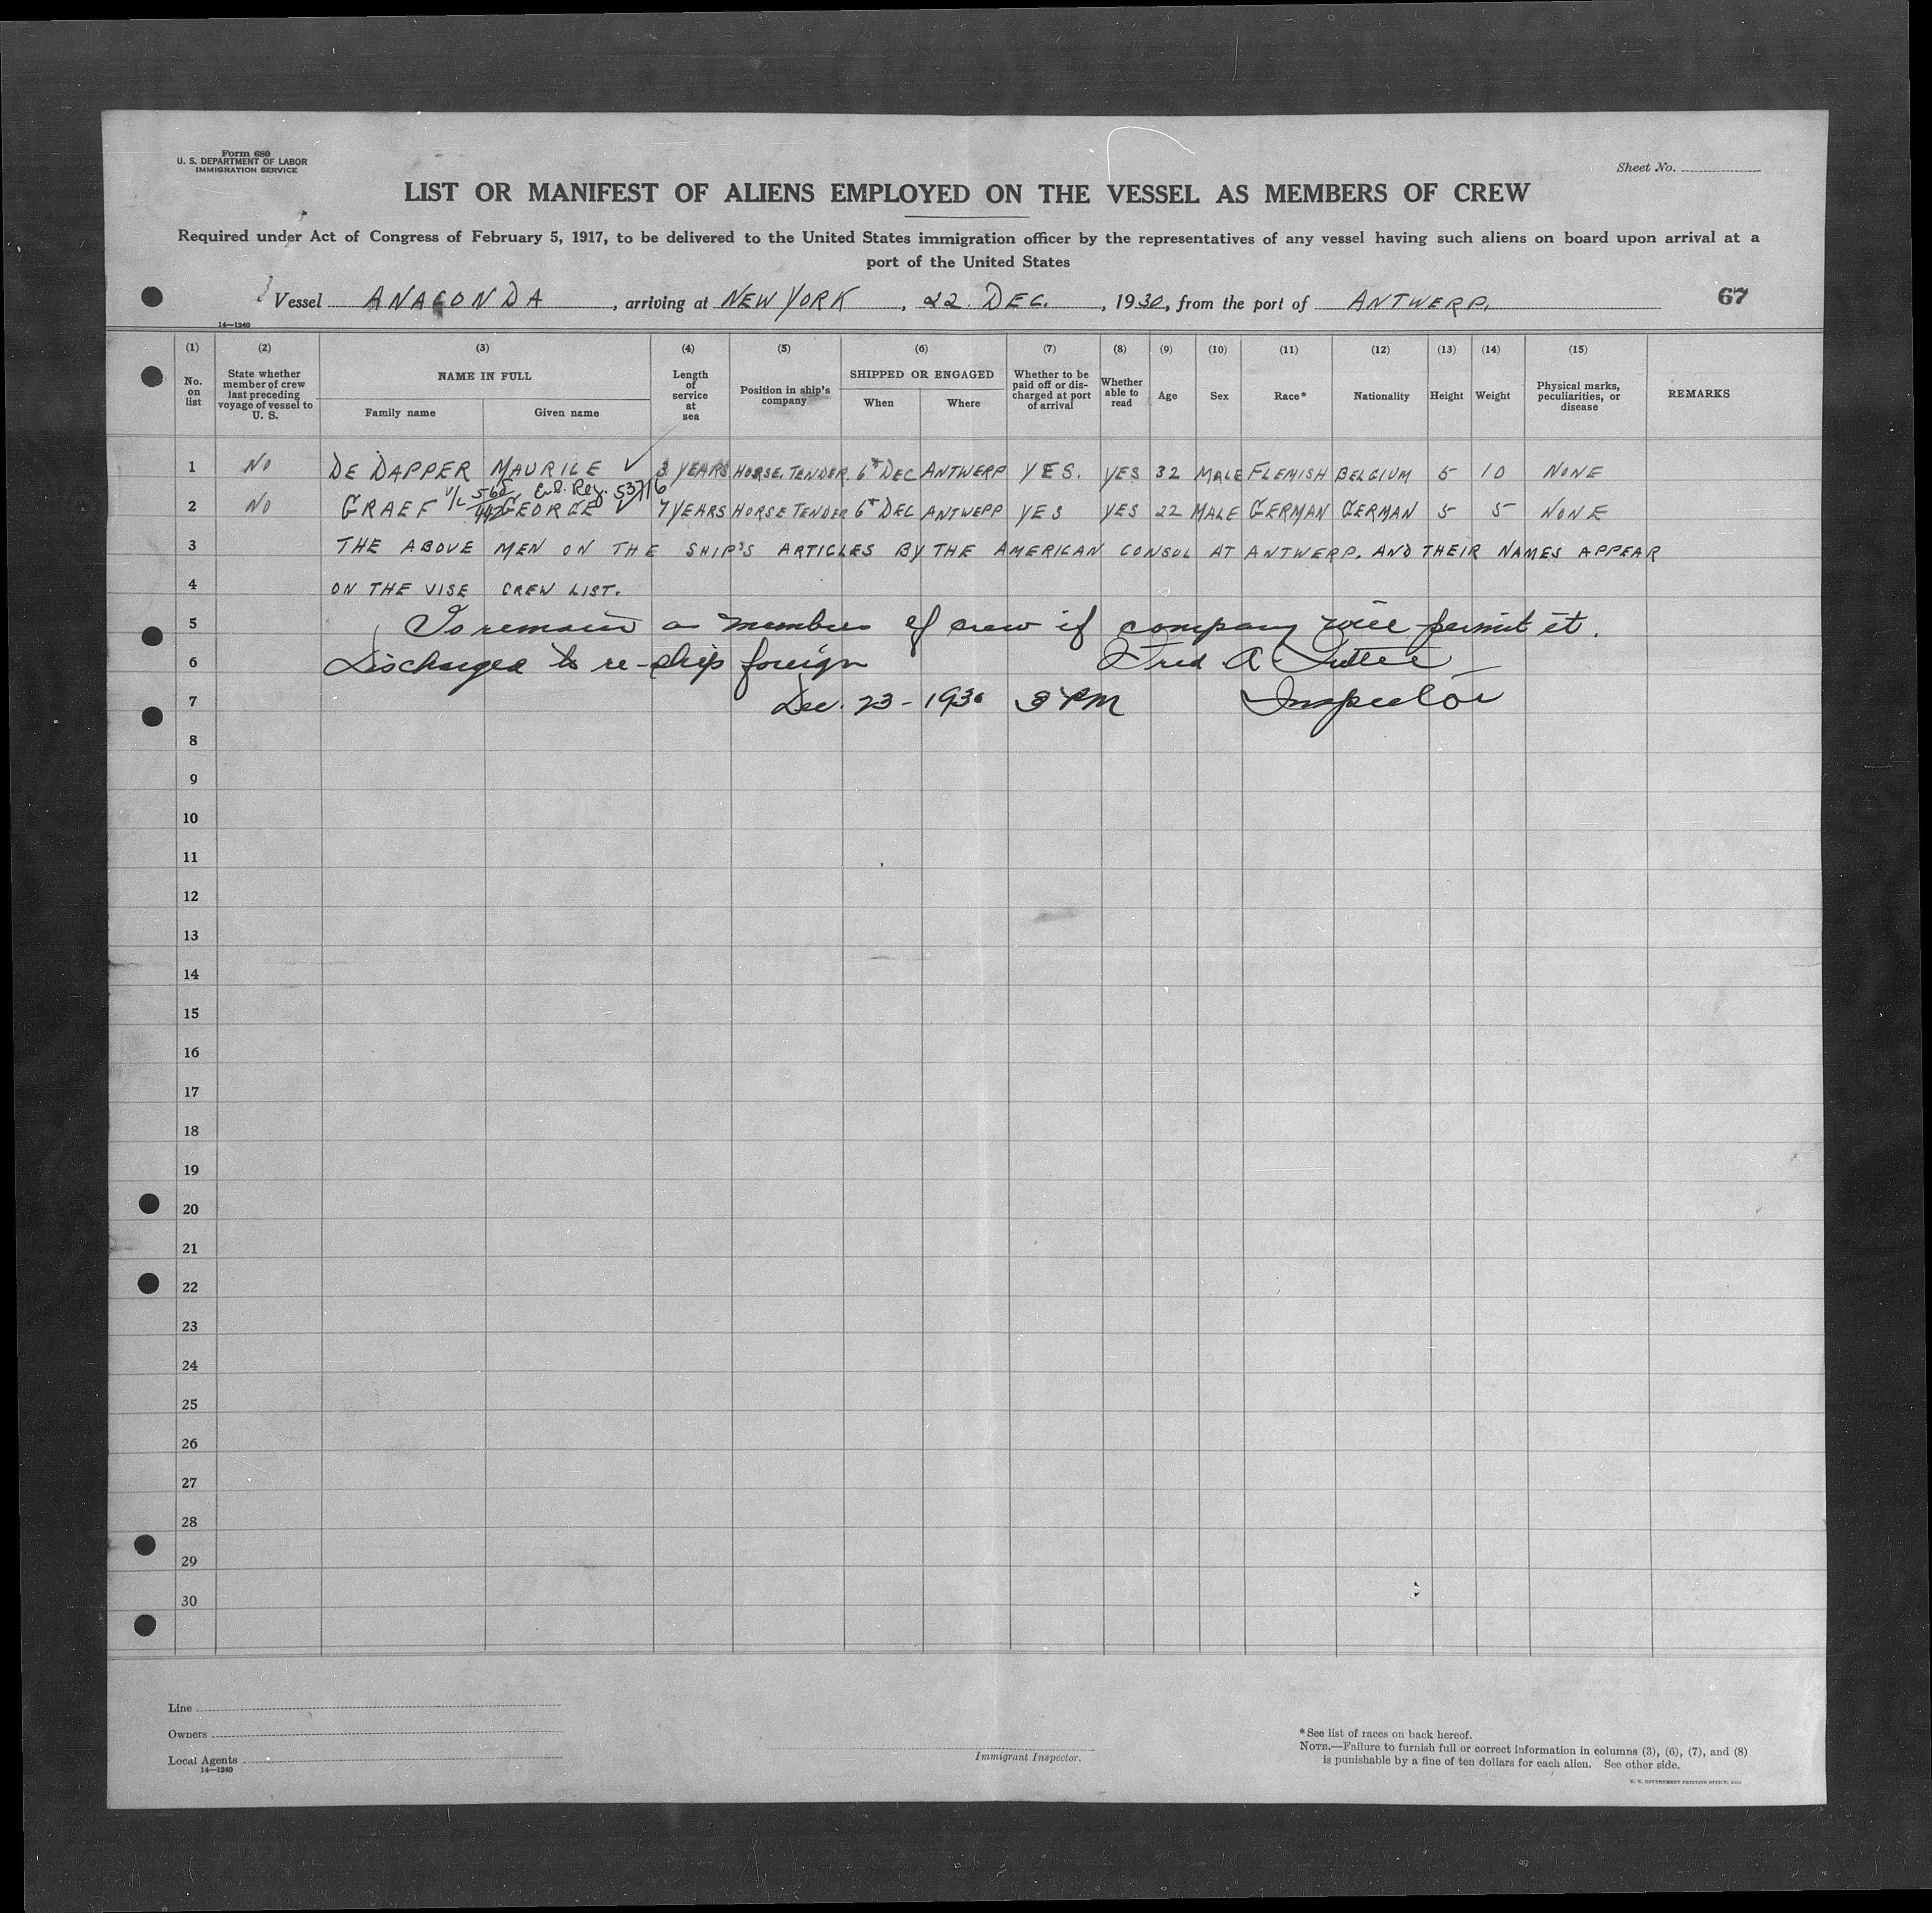 Form 680
U. S. DEPARTMENT OF LABOR
IMMIGRATION SERVICE
Sheet No.
LIST OR MANIFEST OF ALIENS EMPLOYED ON THE VESSEL AS MEMBERS OF CREW
Required under Act of Congress of February 5, 1917, to be delivered to the United States immigration officer by the representatives of any vessel having such aliens on board upon arrival at a
port of the United States
Vessel ANACONDA, arriving at NEW YORK, 22 DEC., 1930, from the port of ANTWERP.
67
14—1240
(1) (2) (3) (4) (5) (6) (7) (8) (9) (10) (11) (12) (13) (14) (15)
No. on list
State whether member of crew last preceding voyage of vessel to U. S.
NAME IN FULL
Family name Given name
Length of service at sea
Position in ship's company
SHIPPED OR ENGAGED
When Where
Whether to be paid off or discharged at port of arrival
Whether able to read
Age Sex Race* Nationality Height Weight
Physical marks, peculiarities, or disease
REMARKS
1 NO DE DAPPER MAURICE ✓ 3 YEARS HORSE TENDER 6th DEC ANTWERP YES. YES 32 MALE FLEMISH BELGIUM 5 10 NONE
V/L 568 Reg. 53716
2 NO GRAEF GEORGE ✓ 7 YEARS HORSE TENDER 6th DEC ANTWERP YES YES 22 MALE GERMAN GERMAN 5 5 NONE
3 THE ABOVE MEN ON THE SHIP'S ARTICLES BY THE AMERICAN CONSUL AT ANTWERP. AND THEIR NAMES APPEAR
4 ON THE VISE CREW LIST.
5 To remain a member of crew if company will permit it.
6 Discharged to re-ship foreign Fred A.
7 Dec. 23 - 1930 3 PM Inspector
8
9
10
11
12
13
14
15
16
17
18
19
20
21
22
23
24
25
26
27
28
29
30
Line
Owners
Local Agents
14—1240
Immigrant Inspector.
*See list of races on back hereof.
NOTE.—Failure to furnish full or correct information in columns (3), (6), (7), and (8)
is punishable by a fine of ten dollars for each alien. See other side.